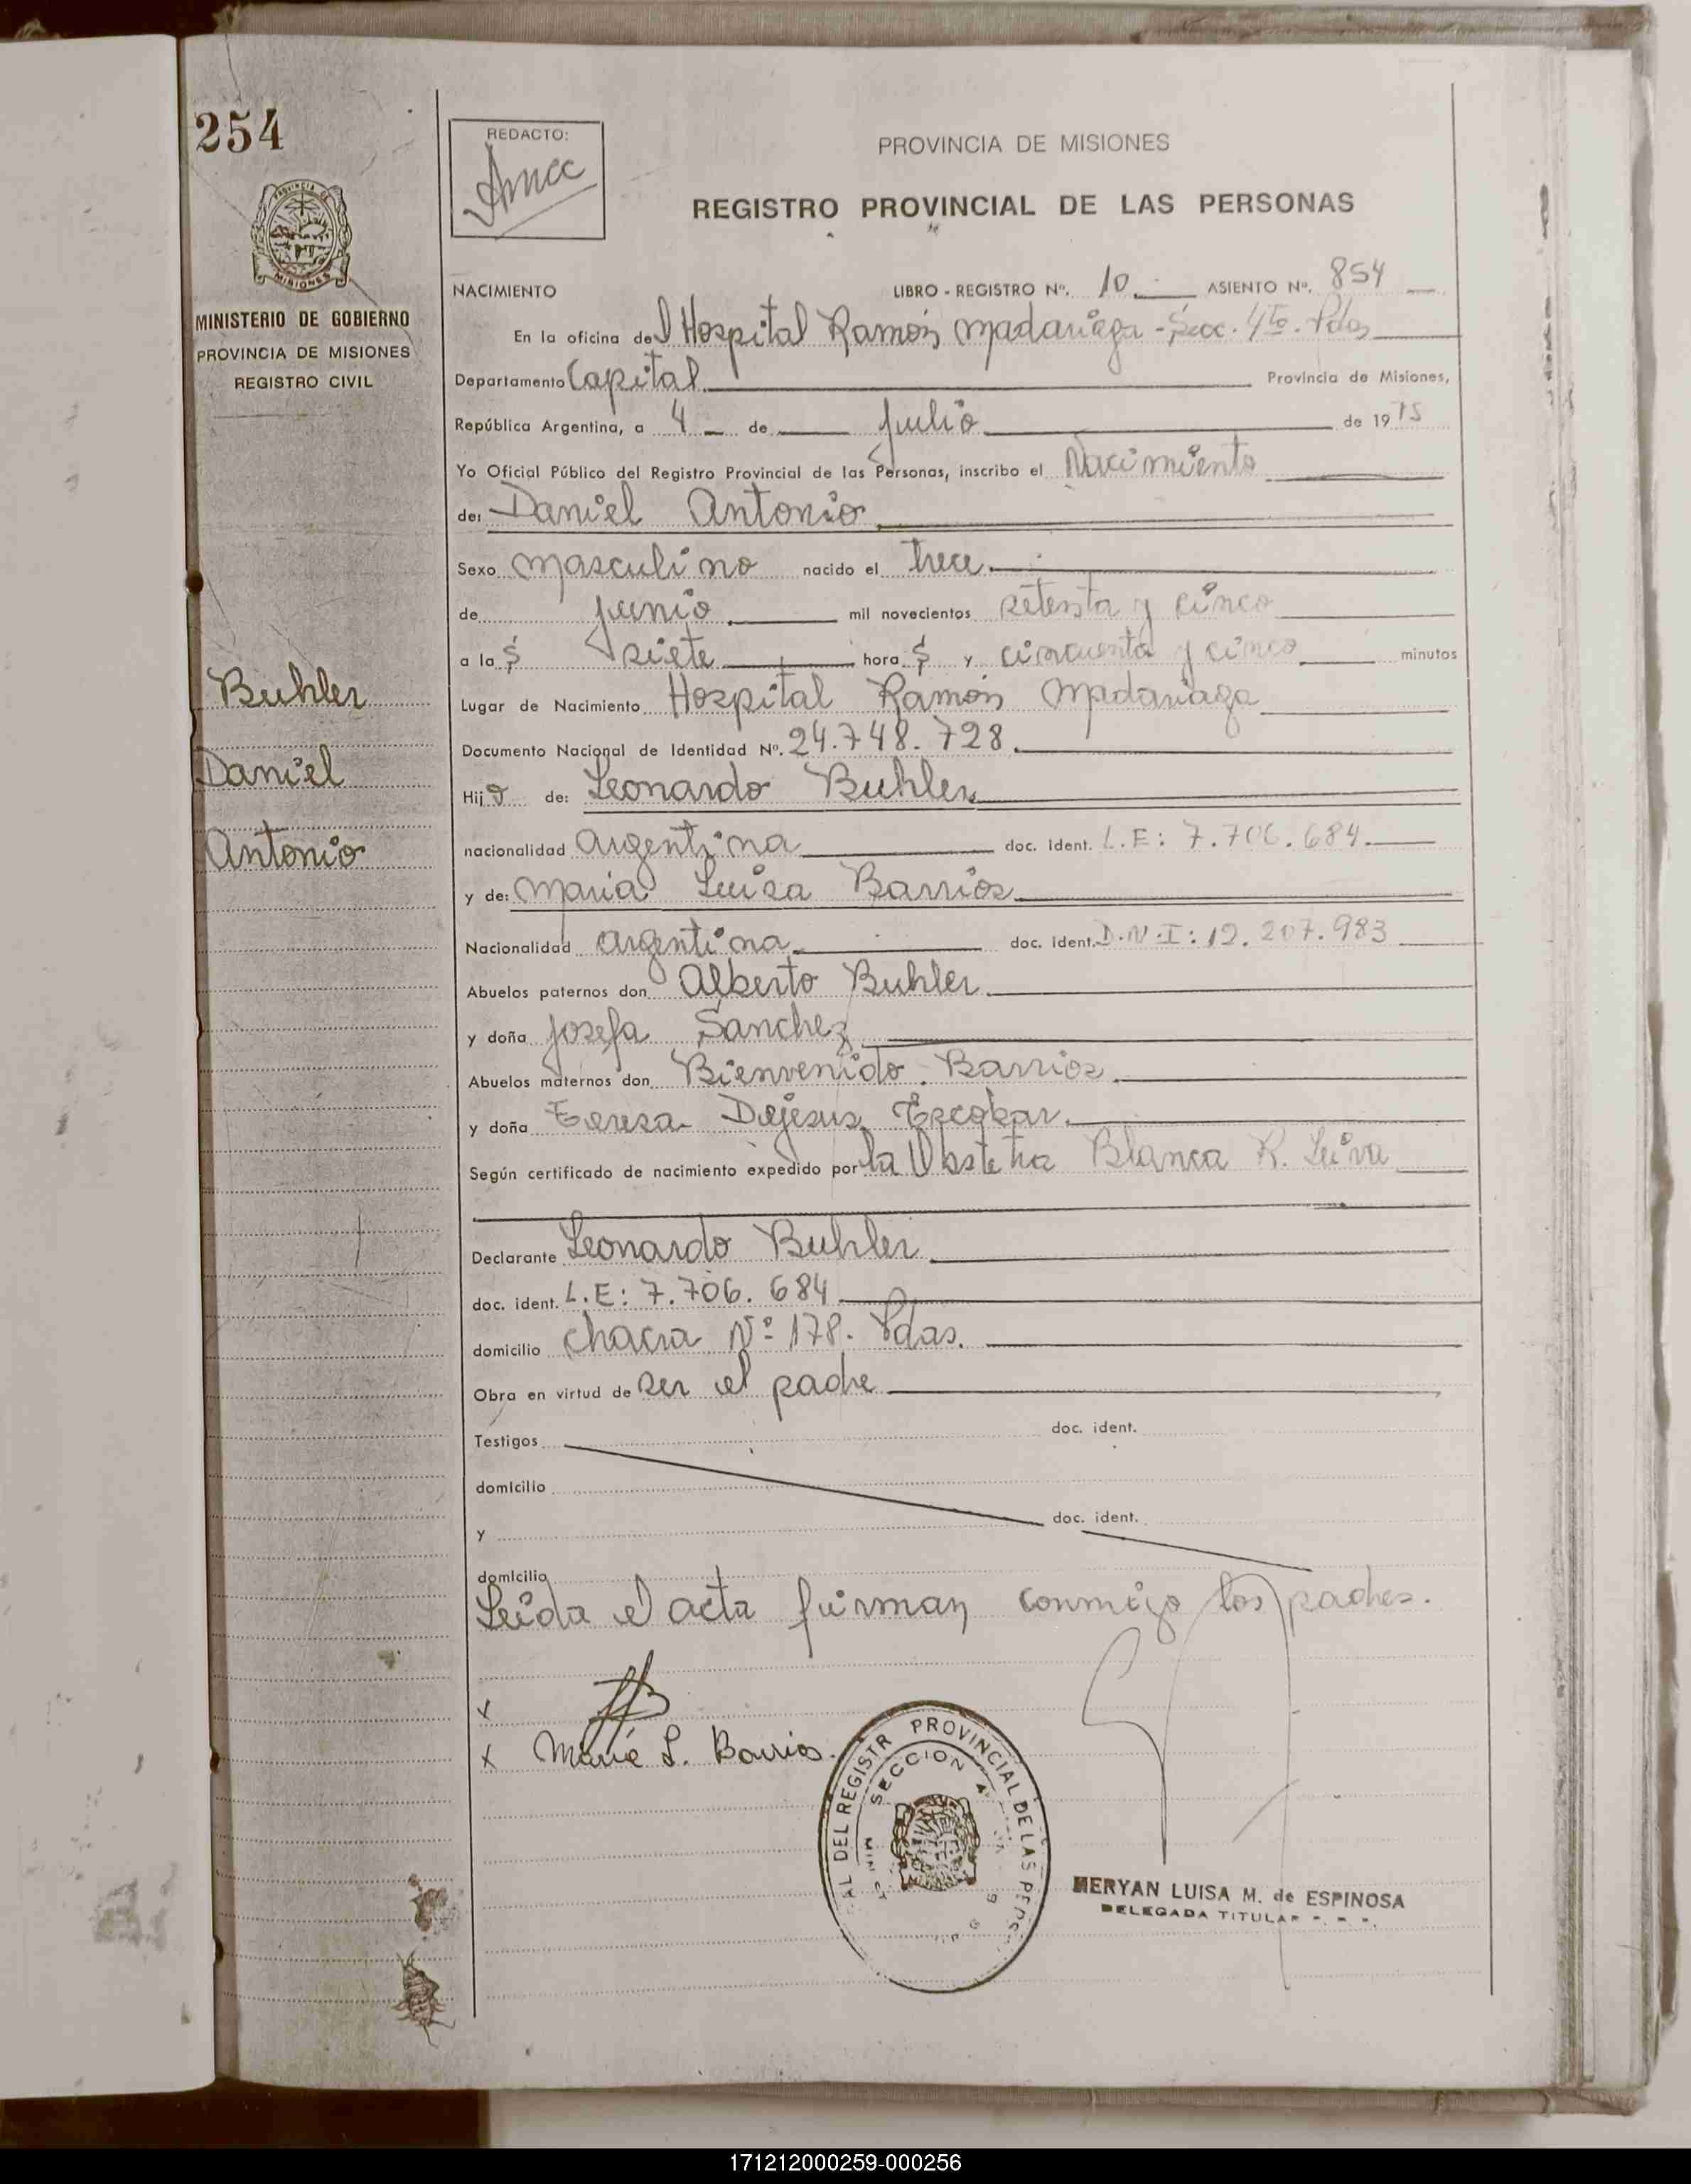 254
REDACTO:
PROVINCIA DE MISIONES
REGISTRO PROVINCIAL DE LAS PERSONAS
PROVINCIA DE MISIONES
MINISTERIO DE GOBIERNO
PROVINCIA DE MISIONES
REGISTRO CIVIL
Buhler
Daniel
Antonio
NACIMIENTO LIBRO - REGISTRO Nº. 10 ASIENTO Nº. 854
En la oficina del Hospital Ramón Madariaga - Secc. 4ta. Pdas
Departamento Capital Provincia de Misiones,
República Argentina, a 4 de julio de 1975
Yo Oficial Público del Registro Provincial de las Personas, inscribo el Nacimiento
de: Daniel Antonio
Sexo masculino nacido el trece
de junio mil novecientos setenta y cinco
a las siete horas y cincuenta y cinco minutos
Lugar de Nacimiento Hospital Ramón Madariaga
Documento Nacional de Identidad Nº. 24.748.728.
Hijo de: Leonardo Buhler
nacionalidad argentina doc. ident. L.E: 7.706.684.
y de: Maria Luisa Barrios
Nacionalidad argentina doc. ident. D.N.I: 12.207.983
Abuelos paternos don Alberto Buhler
y doña Josefa Sanchez
Abuelos maternos don Bienvenido Barrios
y doña Teresa Dejesus Escobar.
Según certificado de nacimiento expedido por la Obstetra Blanca R. Leiva
Declarante Leonardo Buhler
doc. ident. L.E: 7.706.684
domicilio chacra Nº 178. Pdas.
Obra en virtud de ser el padre
Testigos doc. ident.
domicilio
y doc. ident.
domicilio
Leida el acta firman conmigo los padres.
x
x Marie L. Barrios.
REGISTR PROVINCIAL DE LAS PERS
SECCION 4
MERYAN LUISA M. de ESPINOSA
DELEGADA TITULAR
171212000259-000256